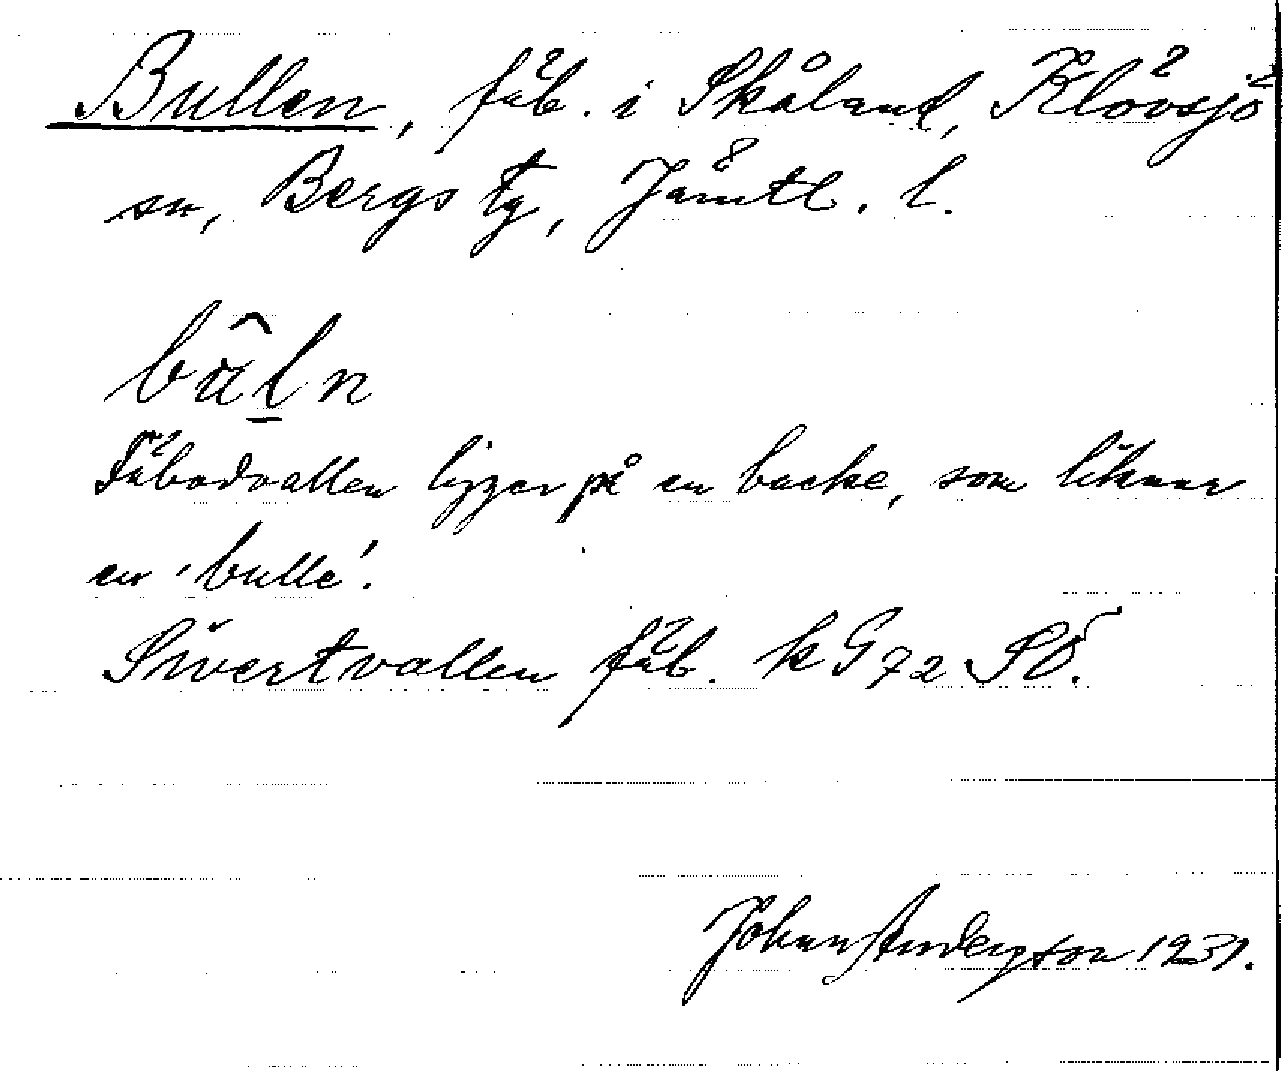 Bullen, fäb. i Skålan, Klövsjö
sn, Bergs tg, Jämtl. l.
bâl̲n
Fäbodvallen ligger på en backe, som liknar
en 'bulle'.
Sivertvallen fäb. k G 72 SÖ.
Johan Andersson 1931.